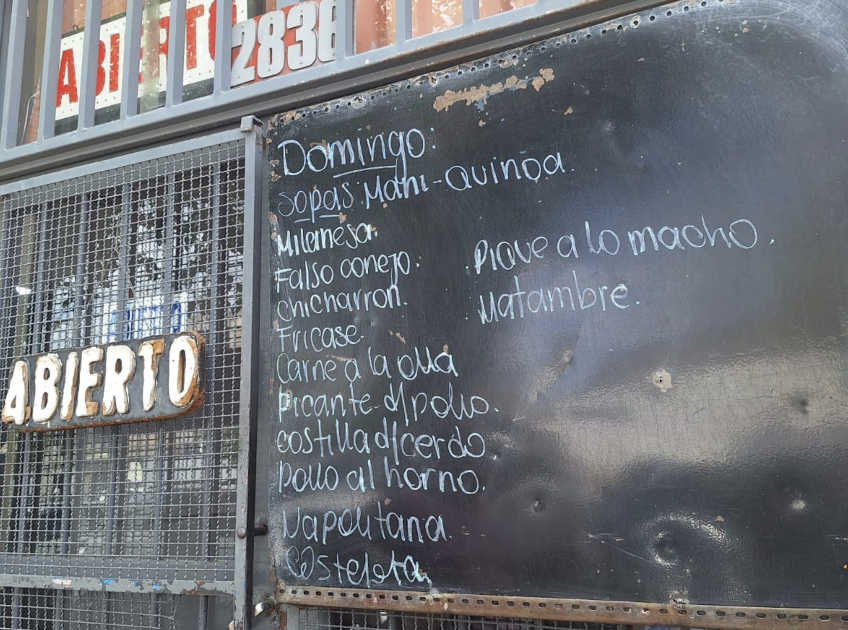 ABIERTO
2836
Domingo:
Sopas Mani-Quinoa.
Milanesa
Falso conejo.
chicharron.
Fricase.
Carne a la olla
Picante d/pollo.
costilla d/cerdo
pollo al horno.
Napolitana.
Costeleta
Pique a lo macho.
Matambre.
ABIERTO